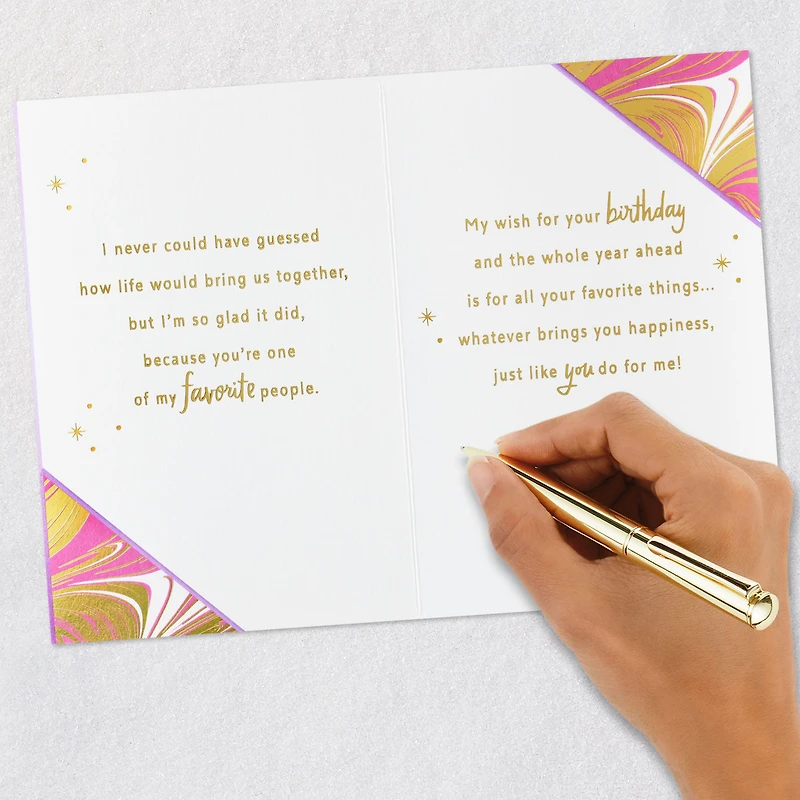 I never could have guessed
how life would bring us together,
but I'm so glad it did,
because you're one
of my favorite people.
My wish for your birthday
and the whole year ahead
is for all your favorite things...
whatever brings you happiness,
just like you do for me!